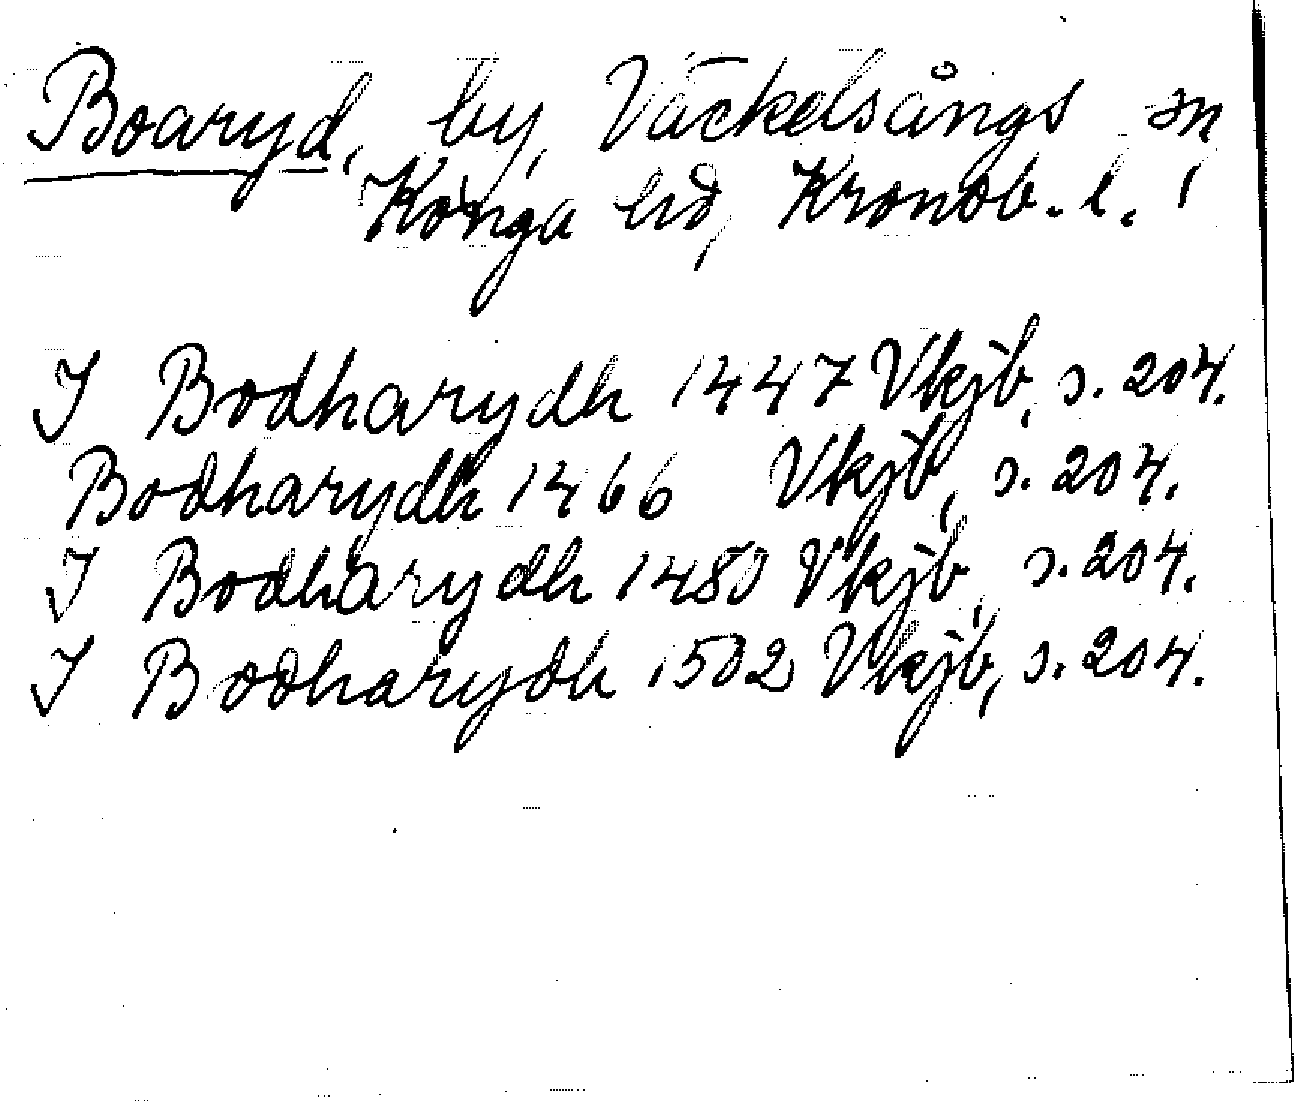 Boaryd, by, Väckelsångs sn,
Konga hd, Kronob. l.
I Bodharydh 1447 Vkjb, s. 204.
Bodharydh 1466 Vkjb, s. 204.
I Bodharydh 1480 Vkjb, s. 204.
I Bodharydh 1502 Vkjb, s. 204.